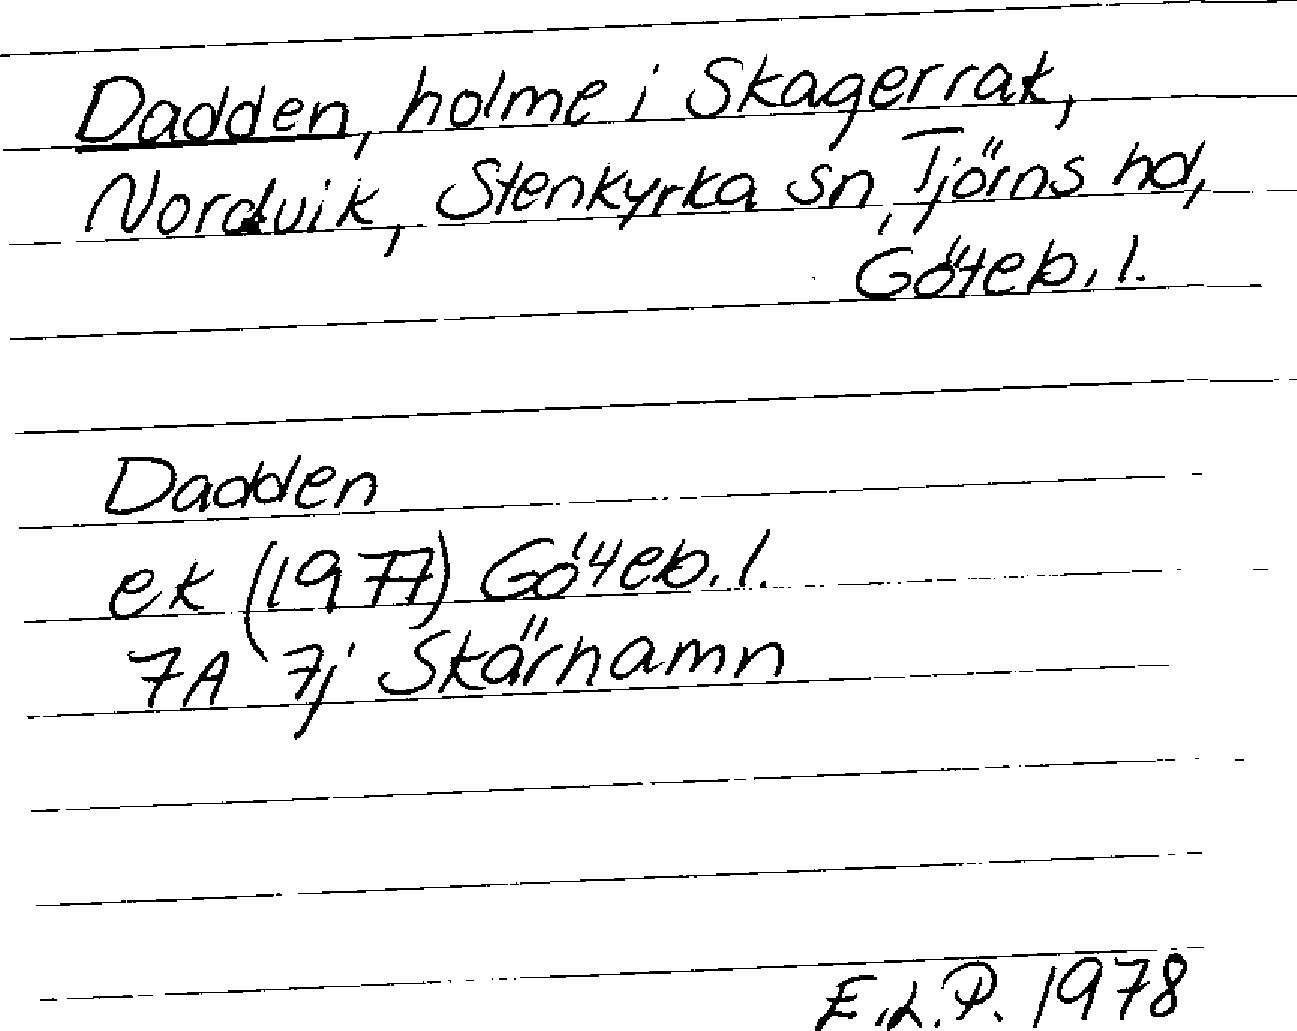 Dadden, holme i Skagerrak,
Nordvik, Stenkyrka sn, Tjörns hd,
Göteb. l.
Dadden
ek (1977) Göteb. l.
7A 7j Skärnamn
E.L.P. 1978